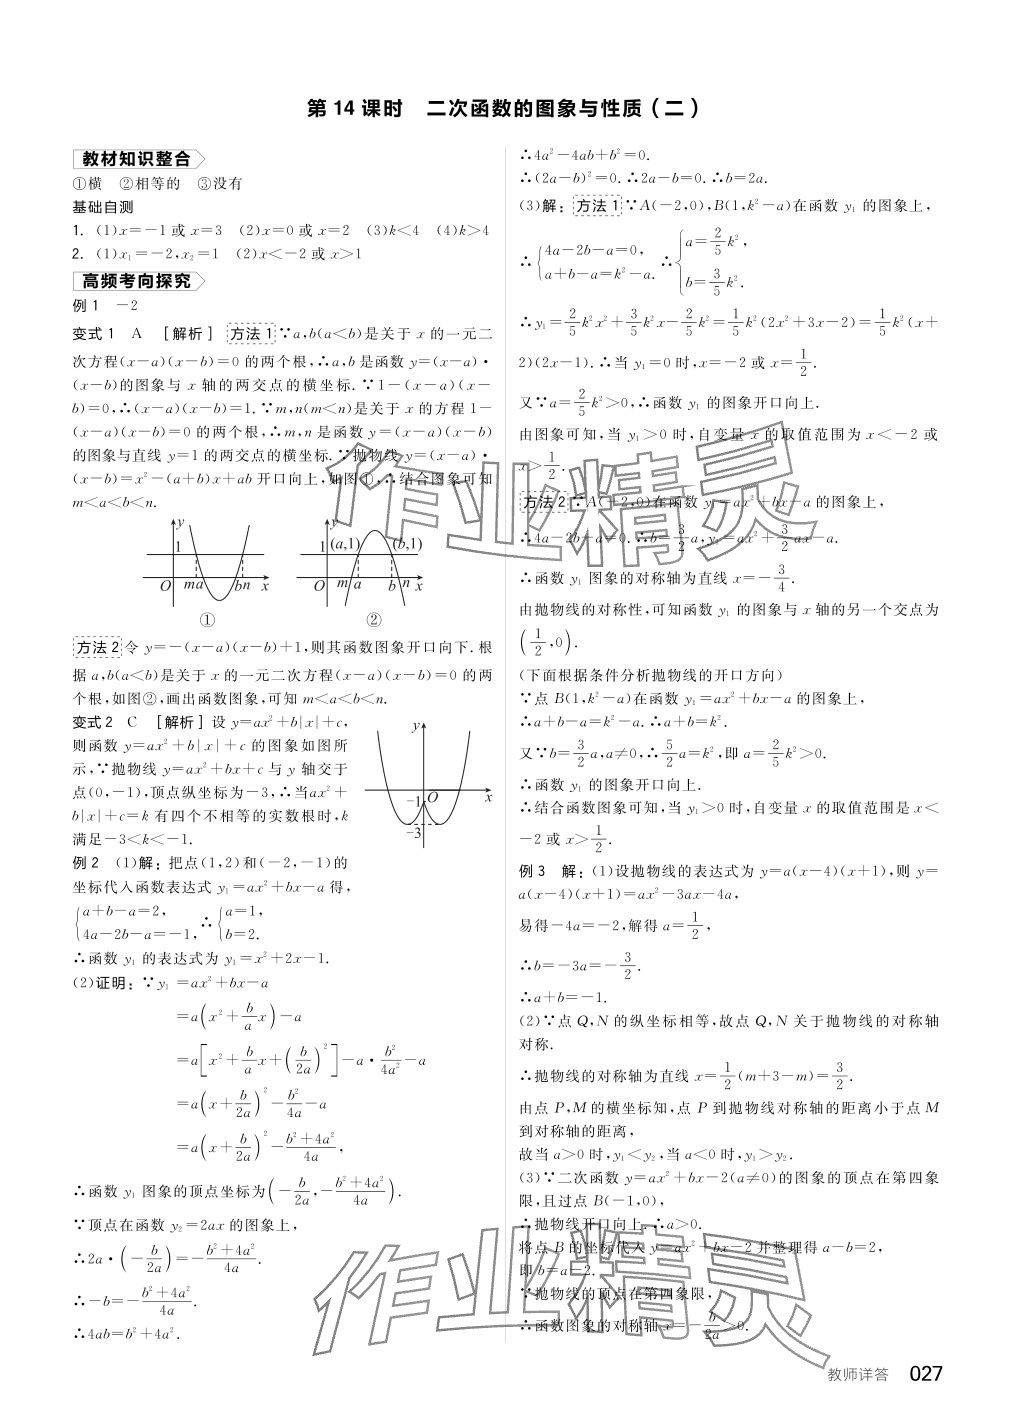 第14课时 二次函数的图象与性质(二)
教材知识整合
①横 ②相等的 ③没有
基础自测
1. (1)x=-1或x=3 (2)x=0或x=2 (3)k<4 (4)k>4
2. (1)x₁=-2,x₂=1 (2)x<-2或x>1
高频考向探究
例1 -2
变式1 A [解析] 方法1 ∵a,b(a<b)是关于x的一元二
次方程(x-a)(x-b)=0的两个根,∴a,b是函数y=(x-a)·
(x-b)的图象与x轴的两交点的横坐标.∵1-(x-a)(x-
b)=0,∴(x-a)(x-b)=1.∵m,n(m<n)是关于x的方程1-
(x-a)(x-b)=0的两个根,∴m,n是函数y=(x-a)(x-b)
的图象与直线y=1的两交点的横坐标.∵抛物线y=(x-a)·
(x-b)=x²-(a+b)x+ab开口向上,如图①,∴结合图象可知
m<a<b<n.
y 1 O m a b n x
①
y 1 (a,1) (b,1) O m a b n x
②
方法2 令y=-(x-a)(x-b)+1,则其函数图象开口向下.根
据a,b(a<b)是关于x的一元二次方程(x-a)(x-b)=0的两
个根,如图②,画出函数图象,可知m<a<b<n.
变式2 C [解析] 设y=ax²+b|x|+c,
则函数y=ax²+b|x|+c的图象如图所
示,∵抛物线y=ax²+bx+c与y轴交于
点(0,-1),顶点纵坐标为-3,∴当ax²+
b|x|+c=k有四个不相等的实数根时,k
满足-3<k<-1.
y -1 O x -3
例2 (1)解:把点(1,2)和(-2,-1)的
坐标代入函数表达式y₁=ax²+bx-a得,
{a+b-a=2, 4a-2b-a=-1, ∴{a=1, b=2.
∴函数y₁的表达式为y₁=x²+2x-1.
(2)证明:∵y₁=ax²+bx-a
=a(x²+b/a x)-a
=a[x²+b/a x+(b/2a)²]-a·b²/4a²-a
=a(x+b/2a)²-b²/4a-a
=a(x+b/2a)²-(b²+4a²)/4a,
∴函数y₁图象的顶点坐标为(-b/2a,-(b²+4a²)/4a).
∵顶点在函数y₂=2ax的图象上,
∴2a·(-b/2a)=-(b²+4a²)/4a.
∴-b=-(b²+4a²)/4a.
∴4ab=b²+4a².
∴4a²-4ab+b²=0.
∴(2a-b)²=0.∴2a-b=0.∴b=2a.
(3)解:方法1 ∵A(-2,0),B(1,k²-a)在函数y₁的图象上,
∴{4a-2b-a=0, a+b-a=k²-a. ∴{a=2/5 k², b=3/5 k².
∴y₁=2/5 k²x²+3/5 k²x-2/5 k²=1/5 k²(2x²+3x-2)=1/5 k²(x+
2)(2x-1).∴当y₁=0时,x=-2或x=1/2.
又∵a=2/5 k²>0,∴函数y₁的图象开口向上.
由图象可知,当y₁>0时,自变量x的取值范围为x<-2或
x>1/2.
方法2 ∵A(-2,0)在函数y₁=ax²+bx-a的图象上,
∴4a-2b-a=0.∴b=3/2 a,y₁=ax²+3/2 ax-a.
∴函数y₁图象的对称轴为直线x=-3/4.
由抛物线的对称性,可知函数y₁的图象与x轴的另一个交点为
(1/2,0).
(下面根据条件分析抛物线的开口方向)
∵点B(1,k²-a)在函数y₁=ax²+bx-a的图象上,
∴a+b-a=k²-a.∴a+b=k².
又∵b=3/2 a,a≠0,∴5/2 a=k²,即a=2/5 k²>0.
∴函数y₁的图象开口向上.
∴结合函数图象可知,当y₁>0时,自变量x的取值范围是x<
-2或x>1/2.
例3 解:(1)设抛物线的表达式为y=a(x-4)(x+1),则y=
a(x-4)(x+1)=ax²-3ax-4a,
易得-4a=-2,解得a=1/2,
∴b=-3a=-3/2.
∴a+b=-1.
(2)∵点Q,N的纵坐标相等,故点Q,N关于抛物线的对称轴
对称.
∴抛物线的对称轴为直线x=1/2(m+3-m)=3/2.
由点P,M的横坐标知,点P到抛物线对称轴的距离小于点M
到对称轴的距离,
故当a>0时,y₁<y₂,当a<0时,y₁>y₂.
(3)∵二次函数y=ax²+bx-2(a≠0)的图象的顶点在第四象
限,且过点B(-1,0),
∴抛物线开口向上.∴a>0.
将点B的坐标代入y=ax²+bx-2并整理得a-b=2,
即b=a-2.
∵抛物线的顶点在第四象限,
∴函数图象的对称轴x=-b/2a>0.
作业精灵
作业精灵
教师详答 027